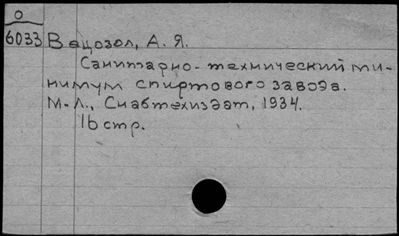 О
6033 Вацозол, А. Я.
Санитарно-технический ми-
нимум спиртового завода.
М.-Л., Снабтехиздат, 1934.
16 стр.